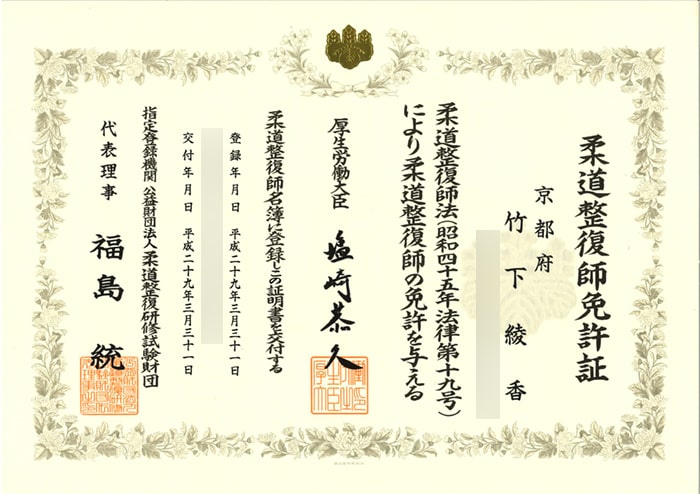 柔道整復師免許証
京都府
竹下綾香
柔道整復師法（昭和四十五年法律第十九号）
により柔道整復師の免許を与える
厚生労働大臣 塩崎恭久
柔道整復師名簿に登録しこの証明書を交付する
登録年月日 平成二十九年三月三十一日
交付年月日 平成二十九年三月三十一日
指定登録機関 公益財団法人柔道整復研修試験財団
代表理事 福島 統